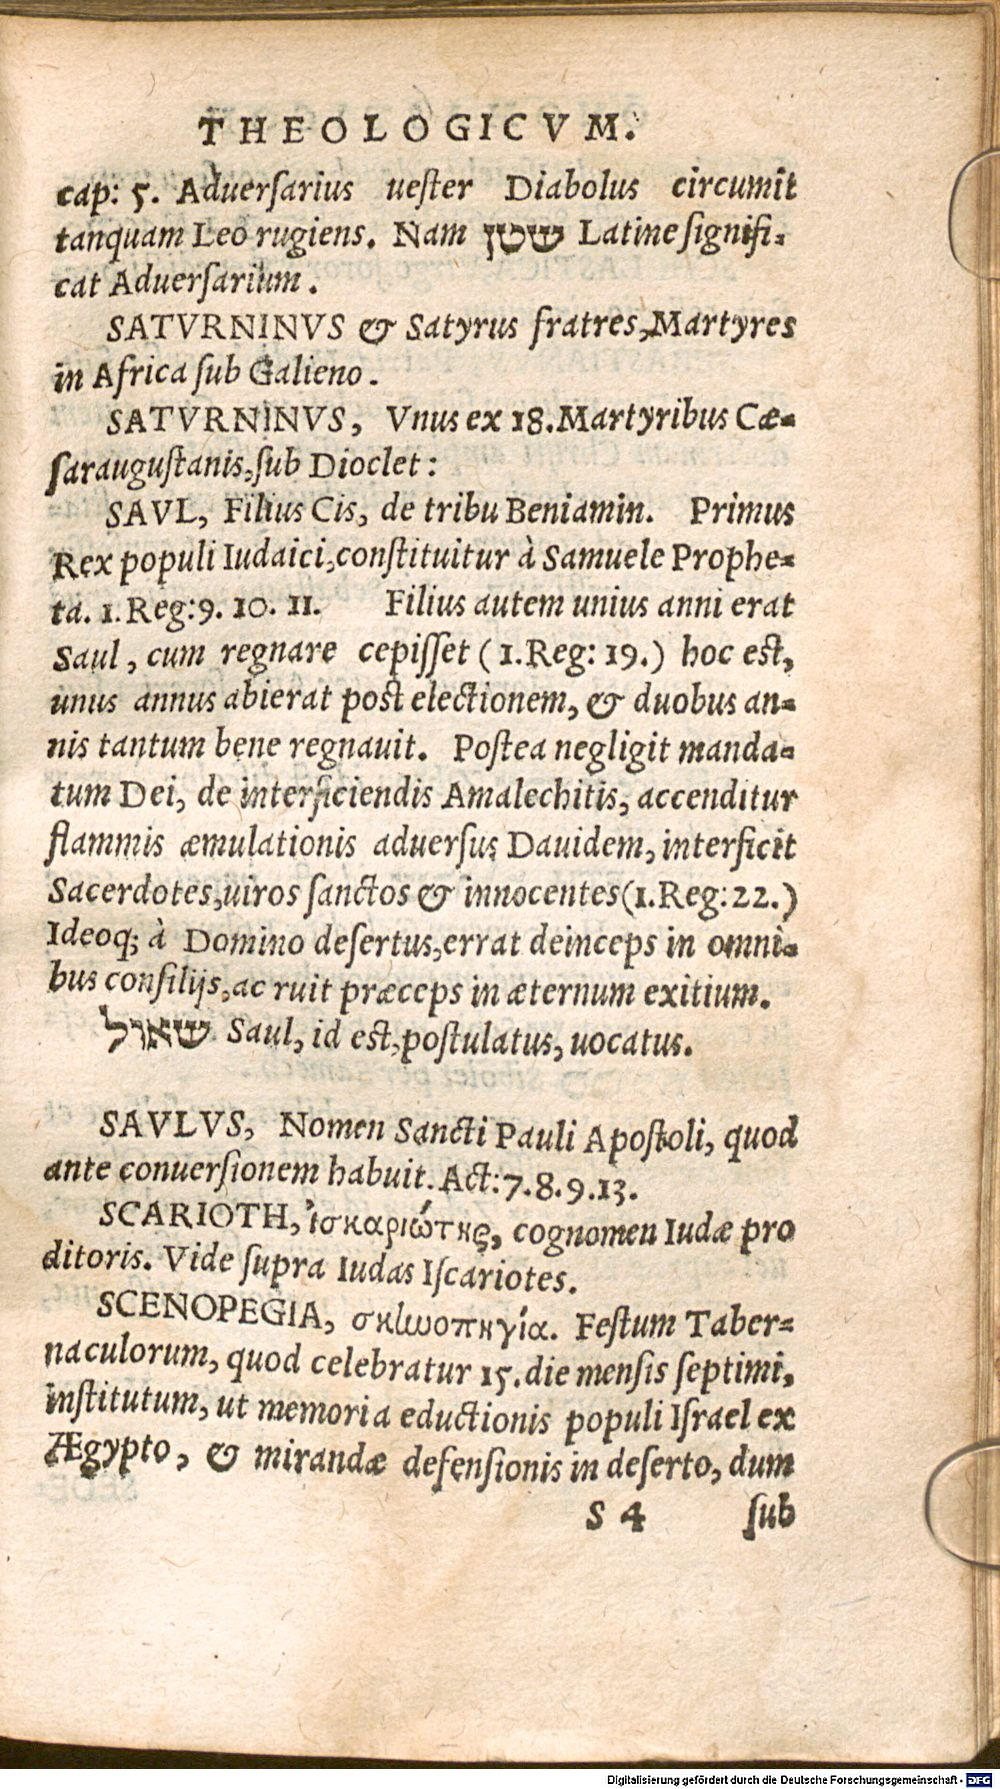 THEOLOGICVM.
cap: 5. Aduerſarius ueſter Diabolus circumit
tanquam Leo rugiens. Nam שטן Latine ſignifi-
cat Aduerſarium.
SATVRNINVS & Satyrus fratres, Martyres
in Africa ſub Galieno.
SATVRNINVS, Vnus ex 18. Martyribus Cæ-
ſarauguſtanis, ſub Dioclet:
SAVL, Filius Cis, de tribu Beniamin. Primus
Rex populi Iudaici, conſtituitur à Samuele Prophe-
ta. 1. Reg: 9. 10. 11. Filius autem unius anni erat
Saul, cum regnare cepiſſet (1. Reg: 19.) hoc est,
unus annus abierat post electionem, & duobus an-
nis tantum bene regnauit. Poſtea negligit manda-
tum Dei, de interficiendis Amalechitis, accenditur
flammis æmulationis aduerſus Dauidem, interficit
Sacerdotes, uiros ſanctos & innocentes (1. Reg: 22.)
Ideoq; à Domino deſertus, errat deinceps in omni-
bus conſilijs, ac ruit præceps in æternum exitium.
שאול Saul, id est, poſtulatus, uocatus.
SAVLVS, Nomen Sancti Pauli Apoſtoli, quod
ante conuerſionem habuit. Act: 7. 8. 9. 13.
SCARIOTH, ἰσκαριώτης, cognomen Iudæ pro
ditoris. Vide ſupra Iudas Iſcariotes.
SCENOPEGIA, σκηνοπηγία. Feſtum Taber-
naculorum, quod celebratur 15. die menſis ſeptimi,
inſtitutum, ut memoria eductionis populi Iſrael ex
Ægypto, & mirandæ defenſionis in deſerto, dum
S 4 ſub
Digitalisierung gefördert durch die Deutsche Forschungsgemeinschaft - DFG